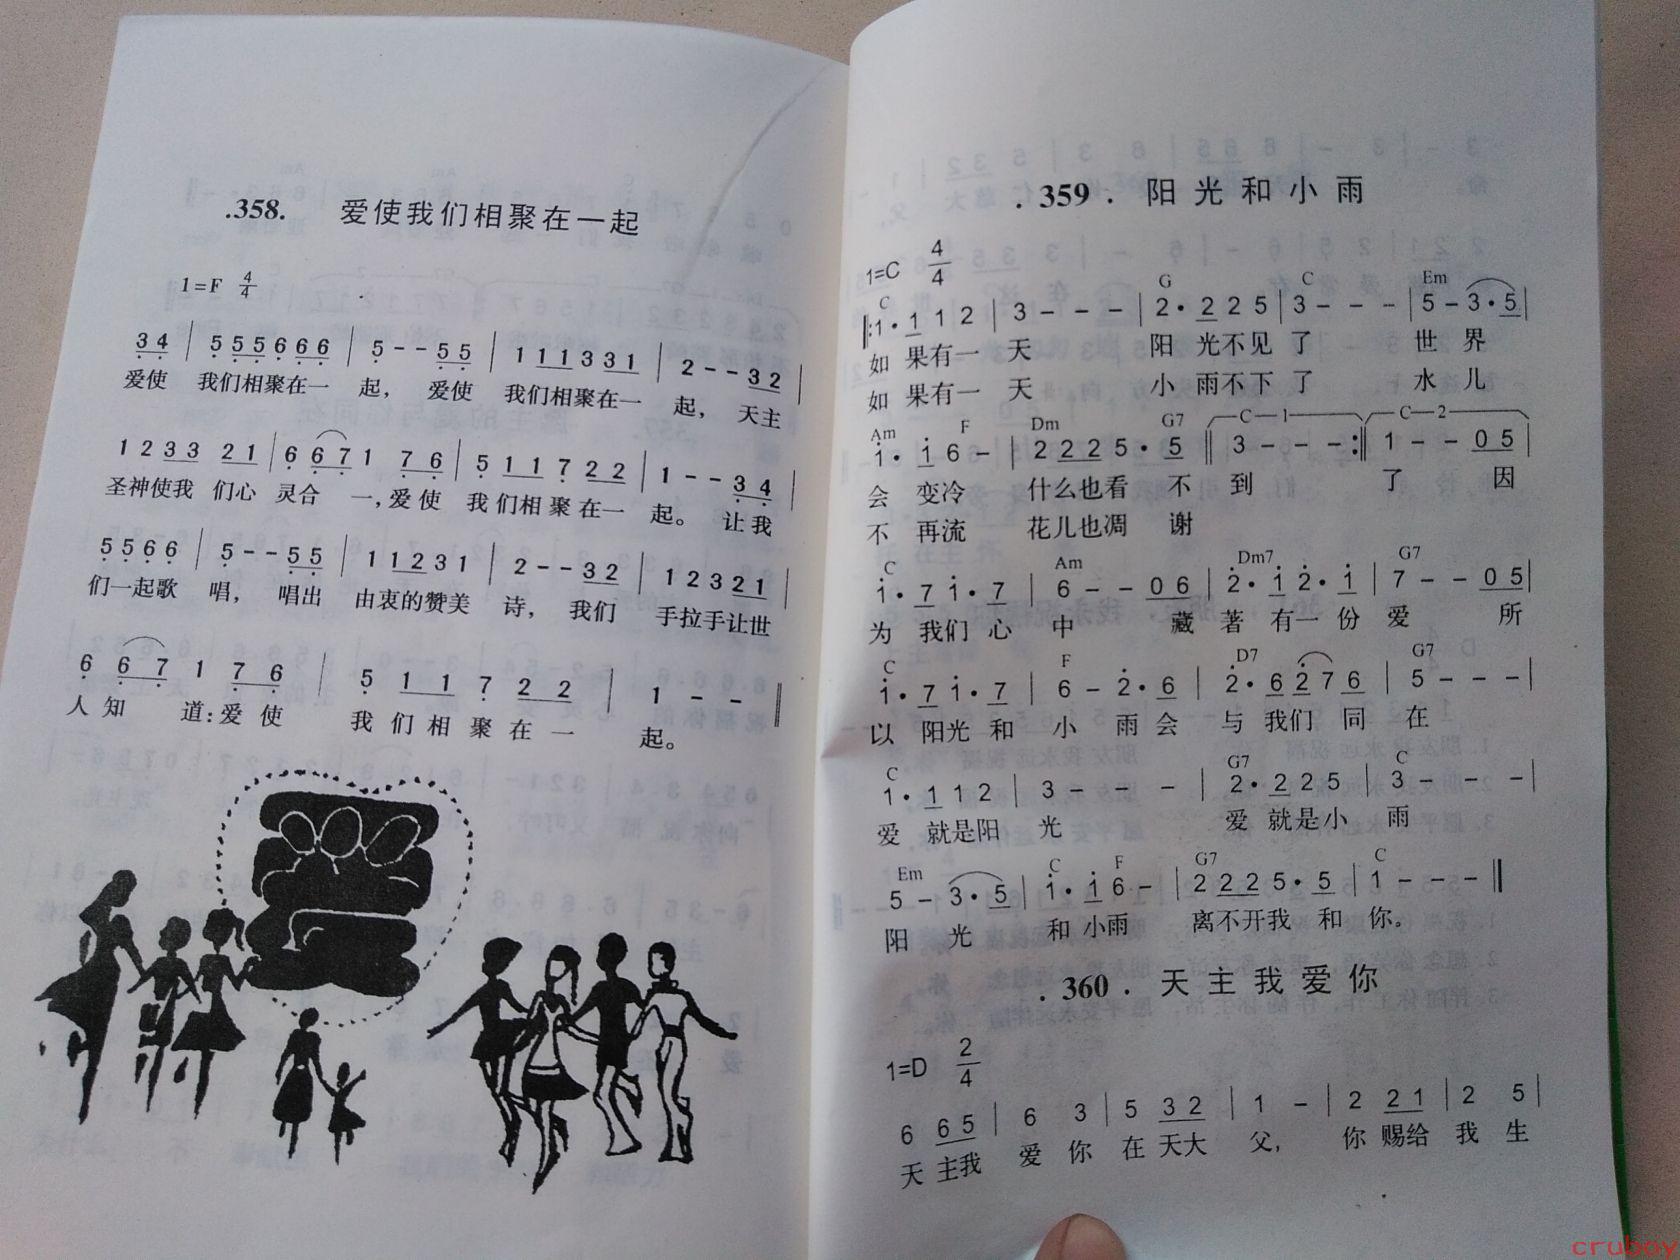 .358. 爱使我们相聚在一起
1=F 4/4
34 | 555666 | 5--55 | 111331 | 2--32 |
爱使 我们相聚在一 起, 爱使 我们相聚在一 起, 天主
1233 21 | 6 67 1 76 | 5 11 7 22 | 1--34 |
圣神使我 们心 灵合 一,爱使 我们相聚在一 起。 让我
5566 | 5--55 | 11231 | 2--32 | 12321 |
们一起歌 唱, 唱出 由衷的赞美 诗, 我们 手拉手让世
6 67 1 76 | 5 11 7 22 | 1 - - ‖
人知 道:爱使 我们相聚在一 起。
.359. 阳光和小雨
1=C 4/4
C G C Em
‖:1·1 1 2 | 3 - - - | 2·2 2 5 | 3 - - - | 5 - 3·5 |
如 果有一 天 阳 光不见 了 世 界
如 果有一 天 小 雨不下 了 水 儿
Am F Dm G7 C-1 C-2
1·1 6 - | 2 2 2 5·5 ‖ 3 - - - :‖ 1 - - 0 5 |
会 变冷 什么也看 不 到 了 因
不 再流 花儿也凋 谢
C Am Dm7 G7
1·7 1·7 | 6 - - 0 6 | 2·1 2·1 | 7 - - 0 5 |
为 我们 心 中 藏 著 有一 份 爱 所
C F D7 G7
1·7 1·7 | 6 - 2·6 | 2·6 2 7 6 | 5 - - - |
以 阳光 和 小 雨 会 与 我们 同 在
C G7 C
1·1 1 2 | 3 - - - | 2·2 2 5 | 3 - - - |
爱 就是阳 光 爱 就是小 雨
Em C F G7 C
5 - 3·5 | 1·1 6 - | 2 2 2 5·5 | 1 - - - ‖
阳 光 和 小雨 离不开我 和 你。
.360. 天主我爱你
1=D 2/4
6 65 | 6 3 | 5 32 | 1 - | 2 21 | 2 5 |
天 主我 爱 你 在 天大 父, 你 赐给 我 生
cruboy